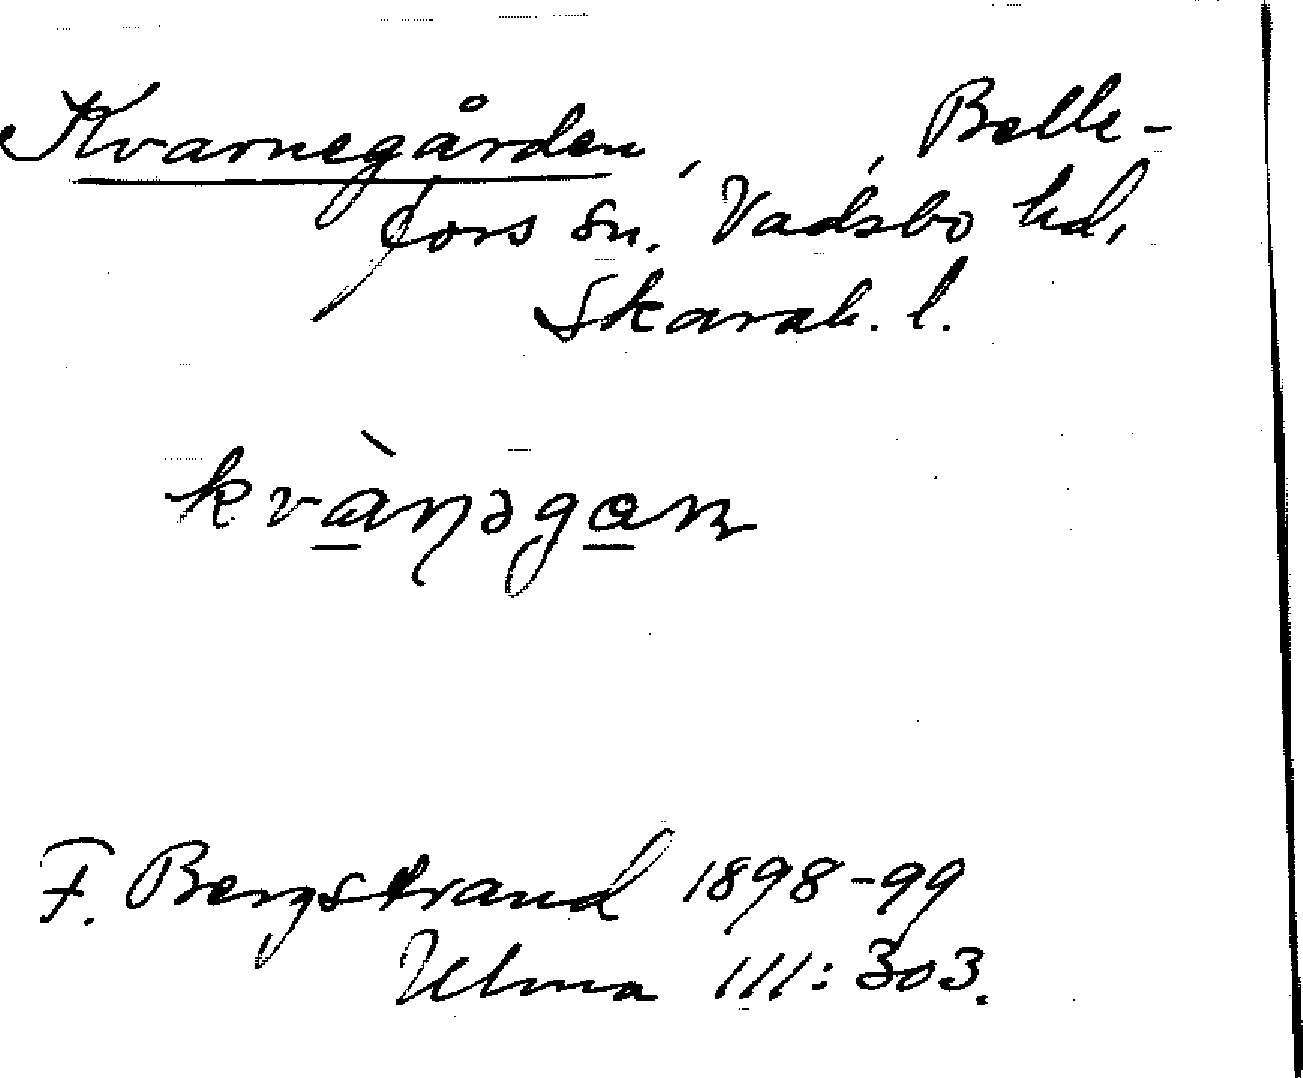 Kvarnegården, , Belle-
fors sn. Vadsbo hd,
Skarab. l.
kvà̠ɳəga̠n
F. Bergstrand 1898-99
Ulma 111:303.